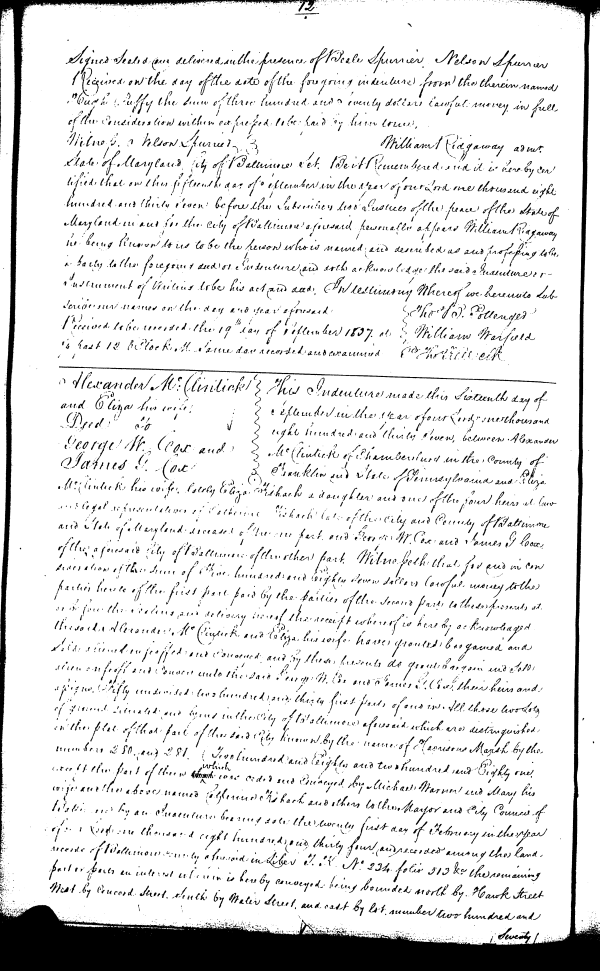 12
Signed Sealed and delivered in the presence of Beale Spurrier, Nelson Spurrier
Received on the day of the date of the foregoing indenture from the therein named
Hugh Duffy the sum of three hundred and twenty dollars lawful money in full
of the consideration within expressed to be paid by him to me,
Witness. Nelson Spurrier William Ridgaway admr.
State of Maryland, City of Baltimore Sct. Be it Remembered and it is hereby cer
tified that on this fifteenth day of September in the year of our Lord one thousand eight
hundred and thirty seven before the Subscribers two Justices of the peace of the State of
Maryland in and for the City of Baltimore aforesaid personally appears William Ridgaway
he being known to us to be the person who is named and described as and professing to be
a party to the foregoing deed or Indenture, and doth acknowledge the said Indenture or
Instrument of writing to be his act and deed. In testimony Whereof we hereunto Sub-
scribe our names on the day and year aforesaid
Received to be recorded the 19th day of September 1837, at William Warfield
past 12 O'Clock M. Same day recorded and examined
Alexander McClintick
and Eliza his wife
Deed To
George W. Cox and
James G. Cox
This Indenture made this Sixteenth day of
September in the year of our Lord one thousand
eight hundred and thirty seven, between Alexander
McClintick of Chambersburg in the County of
Franklin and State of Pennsylvania and Eliza
McClintick his wife, lately Eliza Fishach a daughter and one of the four heirs at law
and legal representatives of Catherine Fishach late of the City and County of Baltimore
and State of Maryland deceased of the one part, and George W. Cox and James G Cox
of the aforesaid City of Baltimore of the other part. Witnesseth that for and in con
sideration of the sum of Five hundred and Eighty Seven dollars lawful money to the
parties hereto of the first part paid by the parties of the second part, to these presents at
or before the sealing and delivery hereof the receipt whereof is hereby acknowledged
the said Alexander McClintick and Eliza his wife have granted bargained and
Sold aliened enfeoffed and conveyed and by these presents do grant bargain and Sell
alien enfeoff and convey unto the said George W. Cox and James G. Cox, their heirs and
assigns. Fifty undivided two hundred and thirty first parts of and in All those two Lots
of ground situated and lying in the City of Baltimore aforesaid which are distinguished
in the plat of that part of the said City known by the name of Harrisons Marsh by the
numbers 280. and 281. (Two hundred and Eighty and two hundred and Eighty one)
except the part of them which were ceded and conveyed by Michael Warner and Mary his
wife and the above named Catherine Fishach and others to the Mayor and City Council of
Baltimore by an Indenture bearing date the twenty first day of February in the year
of our Lord one thousand eight hundred and thirty four, and recorded among the land
records of Baltimore county aforesaid in Liber T. K No 234 folio 213 &c the remaining
part or parts an interest wherein is hereby conveyed being bounded north by Hawk Street
West by Concord Street, South by Water Street, and east by lot number two hundred and
(Seventy)